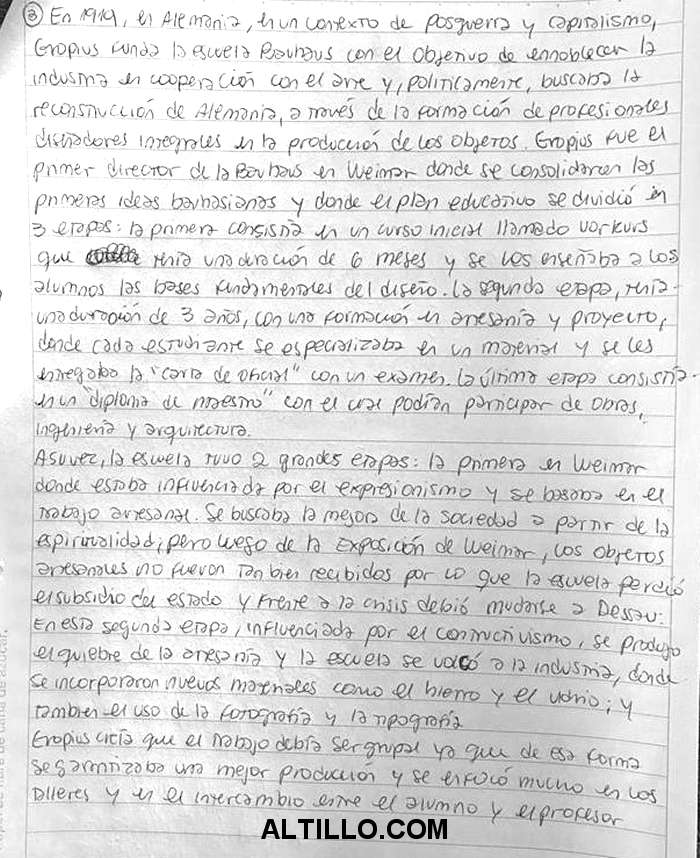 ③ En 1919, en Alemania, en un contexto de posguerra y capitalismo,
Gropius funda la escuela Bauhaus con el objetivo de ennoblecer la
industria en cooperación con el arte y, politicamente, buscaba la
reconstrucción de Alemania, a través de la formación de profesionales
diseñadores integrales en la producción de los objetos. Gropius fue el
primer director de la Bauhaus en Weimar donde se consolidaron las
primeras ideas bauhasianas y donde el plan educativo se dividió en
3 etapas: la primera consistia en un curso inicial llamado vorkurs
que tenia una duración de 6 meses y se les enseñaba a los
alumnos las bases fundamentales del diseño. La segunda etapa, tenia
una duración de 3 años, con una formación en artesania y proyecto,
donde cada estudiante se especializaba en un material y se les
entregaba la "carta de oficial" con un examen. La última etapa consistia
en un "diploma de maestro" con el cual podian participar de obras,
ingenieria y arquitectura.
A su vez, la escuela tuvo 2 grandes etapas: la primera en Weimar
donde estaba influenciada por el expresionismo y se basaba en el
trabajo artesanal. Se buscaba la mejora de la sociedad a partir de la
espiritualidad; pero luego de la Exposición de Weimar, los objetos
artesanales no fueron tan bien recibidos por lo que la escuela perdió
el subsidio del estado y frente a la crisis debió mudarse a Dessau:
En esta segunda etapa, influenciada por el constructivismo, se produjo
el quiebre de la artesania y la escuela se volcó a la industria, donde
se incorporaron nuevos materiales como el hierro y el vidrio; y
tambien el uso de la fotografia y la tipografia
Gropius creia que el trabajo debia ser grupal ya que de esa forma
se garantizaba una mejor producción y se enfocó mucho en los
talleres y en el intercambio entre el alumno y el profesor
ALTILLO.COM